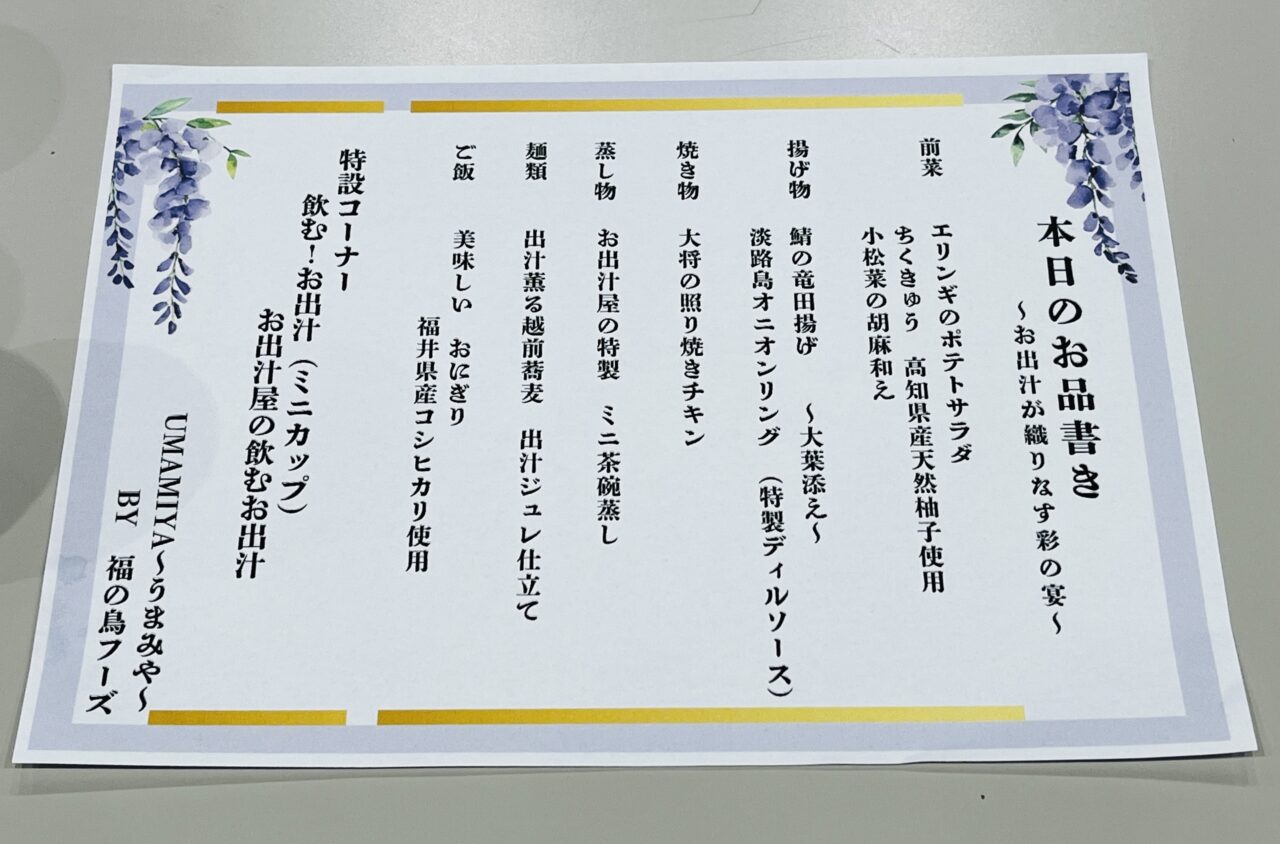 本日のお品書き
～お出汁が織りなす彩の宴～
前菜　エリンギのポテトサラダ
ちくきゅう　高知県産天然柚子使用
小松菜の胡麻和え
揚げ物　鯖の竜田揚げ　～大葉添え～
淡路島オニオンリング　（特製ディルソース）
焼き物　大将の照り焼きチキン
蒸し物　お出汁屋の特製　ミニ茶碗蒸し
麺類　出汁薫る越前蕎麦　出汁ジュレ仕立て
ご飯　美味しい　おにぎり
福井県産コシヒカリ使用
特設コーナー
飲む！お出汁（ミニカップ）
お出汁屋の飲むお出汁
UMAMIYA～うまみや～
BY　福の鳥フーズ